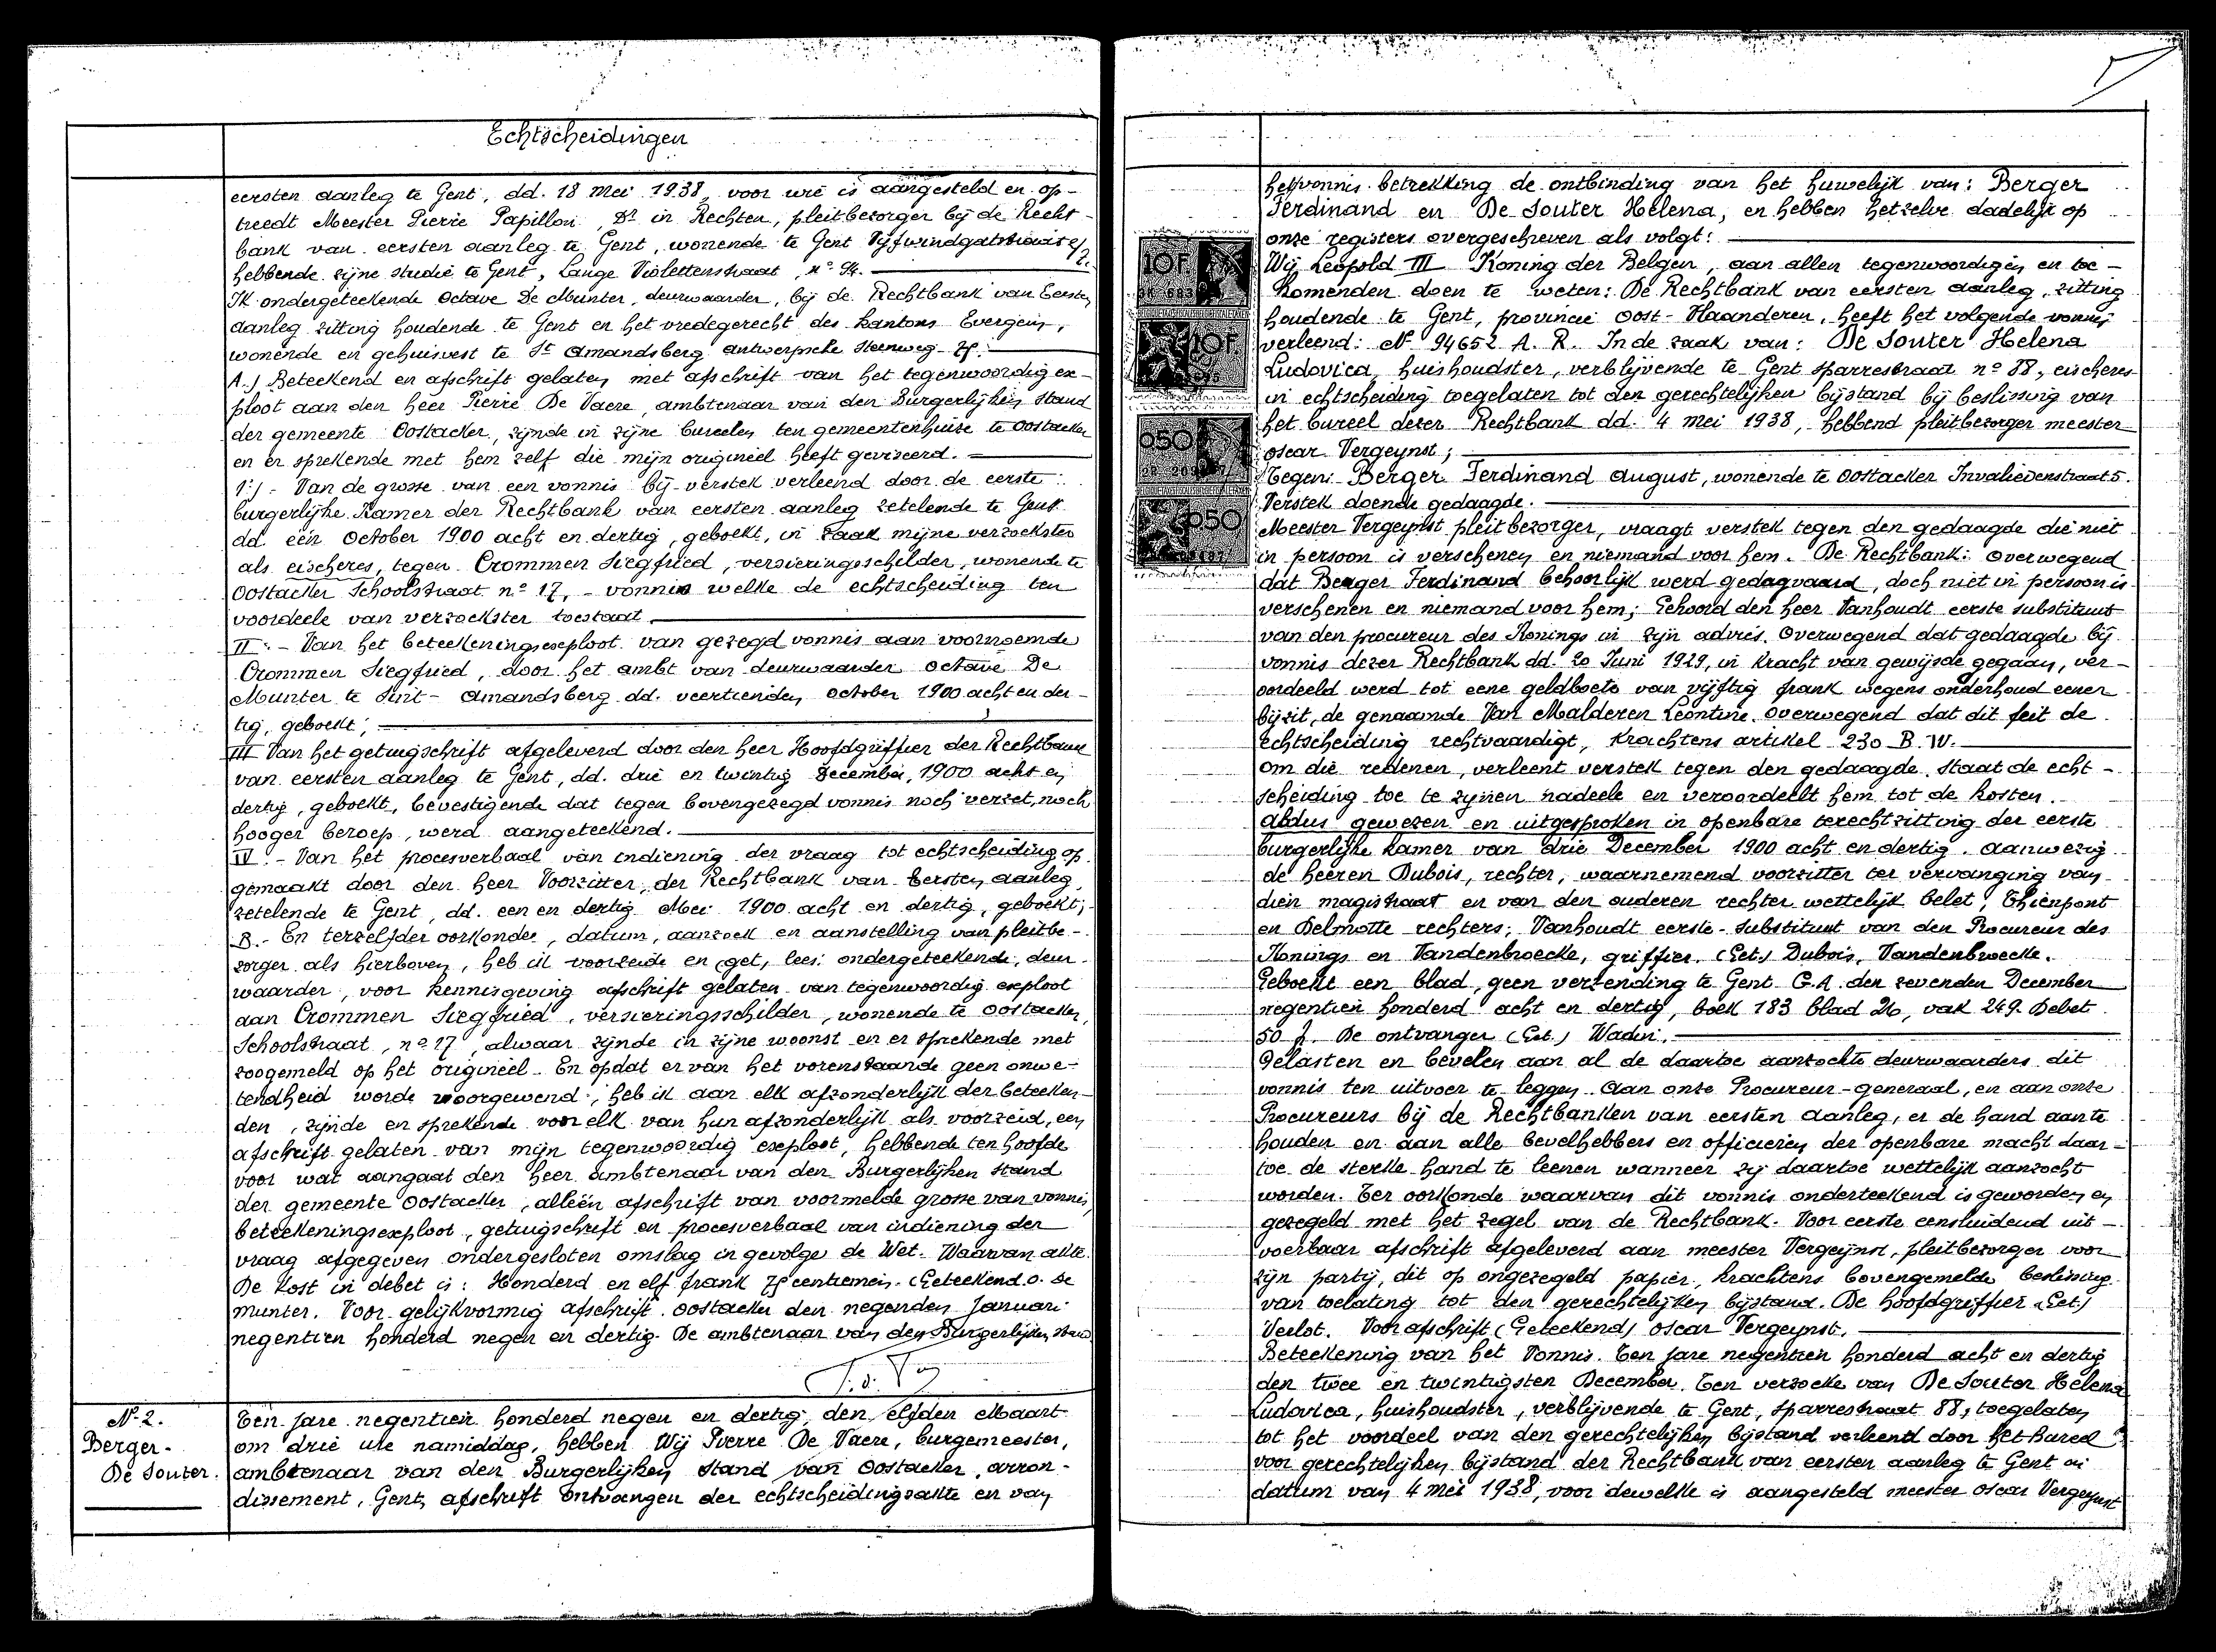 Echtscheidingen
eersten aanleg te Gent, dd. 18 Mei 1938, voor wie is aangesteld en op-
treedt Meester Pierre Papillon, Dr in Rechten, pleitbezorger bij de Recht-
bank van eersten aanleg te Gent, wonende te Gent
hebbende zijne studie te Gent, Lange Violettenstraat, no 94.
Ik ondergeteekende Octave De Munter, deurwaarder, bij de Rechtbank van Eersten
aanleg zitting houdende te Gent en het vredegerecht des kantons Evergem,
wonende en gehuisvest te St Amandsberg Antwerpsche Steenweg 75.
A.) Beteekend en afschrift gelaten met afschrift van het tegenwoordig ex-
ploot aan den heer Pierre De Vaere, ambtenaar van den Burgerlijken Stand
der gemeente Oostacker, zijnde in zijne bureelen ten gemeentenhuize te Oostacker
en er sprekende met hem zelf die mijn origineel heeft geviseerd.
1°) - Van de grosse van een vonnis bij verstek verleend door de eerste
burgerlijke Kamer der Rechtbank van eersten aanleg zetelende te Gent
dd een October 1900 acht en dertig, geboekt, in zaak mijne verzoekster
als eischeres, tegen Crommen Siegfried, versieringsschilder, wonende te
Oostacker Schoolstraat no 17, - vonnis welke de echtscheiding ten
voordeele van verzoekster toestaat.
II° - Van het beteekeningsexploot van gezegd vonnis aan voornoemde
Crommen Siegfried, door het ambt van deurwaarder Octave De
Munter te Sint-Amandsberg dd. veertienden October 1900 acht en der-
tig, geboekt;
III Van het getuigschrift afgeleverd door den heer Hoofdgriffier der Rechtbank
van eersten aanleg te Gent, dd. drie en twintig December, 1900 acht en
dertig, geboekt, bevestigende dat tegen bovengezegd vonnis noch verzet, noch
hooger beroep, werd aangeteekend.
IV° - Van het procesverbaal van indiening der vraag tot echtscheiding op-
gemaakt door den heer Voorzitter, der Rechtbank van Eersten aanleg,
zetelende te Gent, dd. een en dertig Mei 1900 acht en dertig, geboekt;
B.- En terzelfder oorkonde, datum, aanzoek en aanstelling van pleitbe-
zorger als hierboven, heb ik voorzeide en get, lees: ondergeteekende, deur-
waarder, voor kennisgeving afschrift gelaten van tegenwoordig exploot
aan Crommen Siegfried, versieringsschilder, wonende te Oostacker,
Schoolstraat, no 17, alwaar zijnde in zijne woonst en er sprekende met
zoogemeld op het origineel. En opdat er van het vorenstaande geen onwe-
tendheid worde voorgewend, heb ik aan elk afzonderlijk der beteeken-
den, zijnde en sprekende voor elk van hun afzonderlijk als voorzeid, een
afschrift gelaten van mijn tegenwoordig exploot, hebbende ten hoofde
voor wat aangaat den heer ambtenaar van den Burgerlijken stand
der gemeente Oostacker, alleen afschrift van voormelde grosse van vonnis,
beteekeningsexploot, getuigschrift en procesverbaal van indiening der
vraag afgegeven ondergesloten omslag in gevolge de Wet. Waarvan akte.
De kost in debet is: Honderd en elf frank 75 centiemen. (Geteekend O. De
Munter. Voor gelijkvormig afschrift. Oostacker den negenden Januari
negentien honderd negen en dertig. De ambtenaar van den Burgerlijken Stand
No 2.
Berger-
De Souter.
Ten jare negentien honderd negen en dertig, den elfden Maart
om drie ure namiddag, hebben Wij Pierre De Vaere, burgemeester,
ambtenaar van den Burgerlijken Stand van Oostacker, arron-
dissement, Gent, afschrift ontvangen der echtscheidingsakte en van
het vonnis betrekking de ontbinding van het huwelijk van: Berger
Ferdinand en De Souter Helena, en hebben hetzelve dadelijk op
onze registers overgeschreven als volgt:
Wij Leopold III Koning der Belgen, aan allen tegenwoordigen en toe-
komenden doen te weten: De Rechtbank van eersten aanleg, zitting
houdende te Gent, provincie Oost-Vlaanderen, heeft het volgende vonnis
verleend: No 94652 A.R. In de zaak van: De Souter Helena
Ludovica, huishoudster, verblijvende te Gent Sparrestraat no 88, eischeres
in echtscheiding toegelaten tot den gerechtelijken bijstand bij beslissing van
het bureel dezer Rechtbank dd. 4 Mei 1938, hebbend pleitbezorger meester
Oscar Vergeynst;
Tegen: Berger Ferdinand August, wonende te Oostacker Invaliedenstraat 5.
Verstek doende gedaagde.
Meester Vergeynst pleitbezorger, vraagt verstek tegen den gedaagde die niet
in persoon is verschenen en niemand voor hem. De Rechtbank: Overwegend
dat Berger Ferdinand behoorlijk werd gedagvaard, doch niet in persoon is
verschenen en niemand voor hem; Gehoord den heer Vanhoudt eerste substituut
van den procureur des Konings in zijn advies. Overwegend dat gedaagde bij
vonnis dezer Rechtbank dd. 20 Juni 1929, in kracht van gewijsde gegaan, ver-
oordeeld werd tot eene geldboete van vijftig frank wegens onderhoud eener
bijzit, de genaamde Van Malderen Leontine. Overwegend dat dit feit de
echtscheiding rechtvaardigt, krachtens artikel 230 B.W.
Om die redenen, verleent verstek tegen den gedaagde. Staat de echt-
scheiding toe te zijnen nadeele en veroordeelt hem tot de kosten.
Aldus gewezen en uitgesproken in openbare terechtzitting der eerste
burgerlijke kamer van drie December 1900 acht en dertig. Aanwezig
de heeren Dubois, rechter, waarnemend voorzitter ter vervanging van
dien magistraat en van den ouderen rechter wettelijk belet, Thienpont
en Delmotte rechters; Vanhoudt eerste-substituut van den Procureur des
Konings en Vandenbroecke, griffier. (Get.) Dubois, Vandenbroecke.
Geboekt een blad, geen verzending te Gent G.A. den zevenden December
negentien honderd acht en dertig, boek 183 blad 26, vak 249. Debet
50 f. De ontvanger (Get.) Wadin.
Gelasten en bevelen aan al de daartoe aanzochte deurwaarders dit
vonnis ten uitvoer te leggen. Aan onze Procureur-generaal, en aan onze
Procureurs bij de Rechtbanken van eersten aanleg, er de hand aan te
houden en aan alle bevelhebbers en officieren der openbare macht daar-
toe de sterke hand te leenen wanneer zij daartoe wettelijk aanzocht
worden. Ter oorkonde waarvan dit vonnis onderteekend is geworden en
gezegeld met het zegel van de Rechtbank. Voor eerste eensluidend uit-
voerbaar afschrift afgeleverd aan meester Vergeynst, pleitbezorger voor
zijn partij, dit op ongezegeld papier, krachtens bovengemelde beslissing
van toelating tot den gerechtelijken bijstand. De hoofdgriffier (Get.)
Verlot. Voor afschrift (Geteekend) Oscar Vergeynst.
Beteekening van het Vonnis. Ten jare negentien honderd acht en dertig
den twee en twintigsten December. Ten verzoeke van De Souter Helena
Ludovica, huishoudster, verblijvende te Gent, Sparrestraat 88, toegelaten
tot het voordeel van den gerechtelijken bijstand verleend door het bureel
voor gerechtelijken bijstand der Rechtbank van eersten aanleg te Gent in
datum van 4 Mei 1938, voor dewelke is aangesteld meester Oscar Vergeynst
10F
10F
0.50
0.50